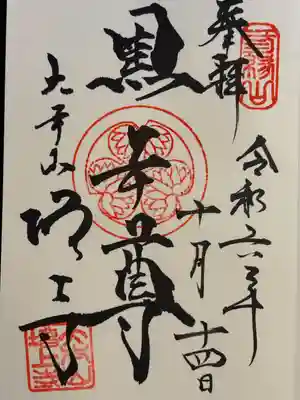 三縁山
奉拝
令和六年
十月十四日
黒本尊
大本山
増上寺